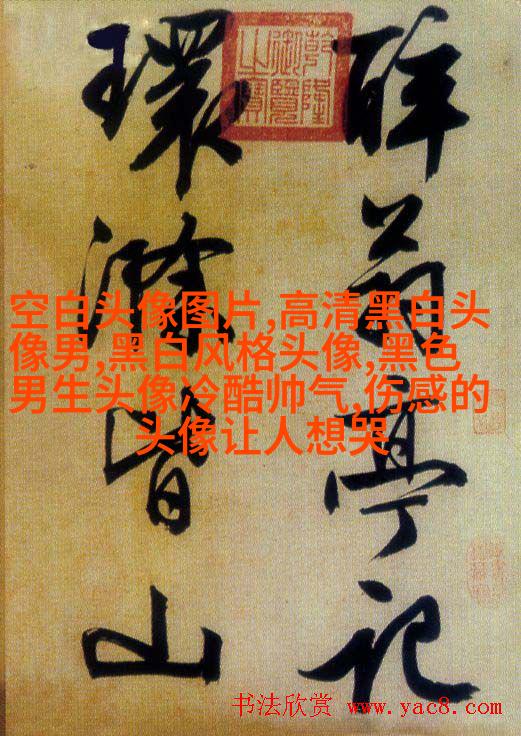 醉翁亭记
環滁皆山
乾隆
御覽
之寶
空白头像图片,高清黑白头
像男,黑白风格头像,黑色
男生头像冷酷帅气,伤感的
头像让人想哭
书法欣赏 www.yac8.com